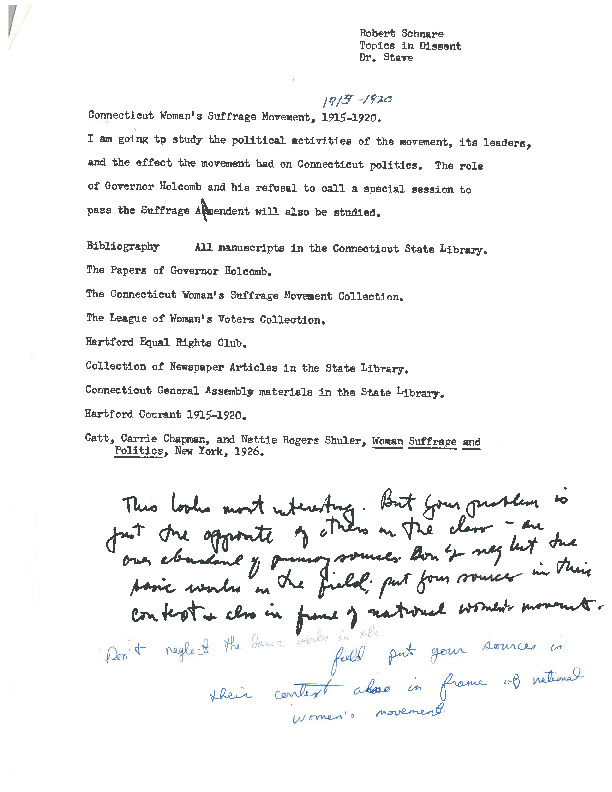 Robert Schnare
Topics in Dissent
Dr. Stave
1915-1920
Connecticut Woman's Suffrage Movement, 1915-1920.
I am going tp study the political activities of the movement, its leaders,
and the effect the movement had on Connecticut politics. The role
of Governor Holcomb and his refusal to call a special session to
pass the Suffrage Amendent will also be studied.
Bibliography All manuscripts in the Connecticut State Library.
The Papers of Governor Holcomb.
The Connecticut Woman's Suffrage Movement Collection.
The League of Woman's Voters Collection.
Hartford Equal Rights Club.
Collection of Newspaper Articles in the State Library.
Connecticut General Assembly materials in the State Library.
Hartford Courant 1915-1920.
Catt, Carrie Chapman, and Nettie Rogers Shuler, Woman Suffrage and
Politics, New York, 1926.
This looks most interesting. But your problem is
just the opposite of others in the class - an
over abundance of primary sources. Don't neglect the
basic works in the field; put your sources in their
context & also in frame of national women's movement.
Don't neglect the basic works in the
field put your sources in
their context also in frame of national
women's movement